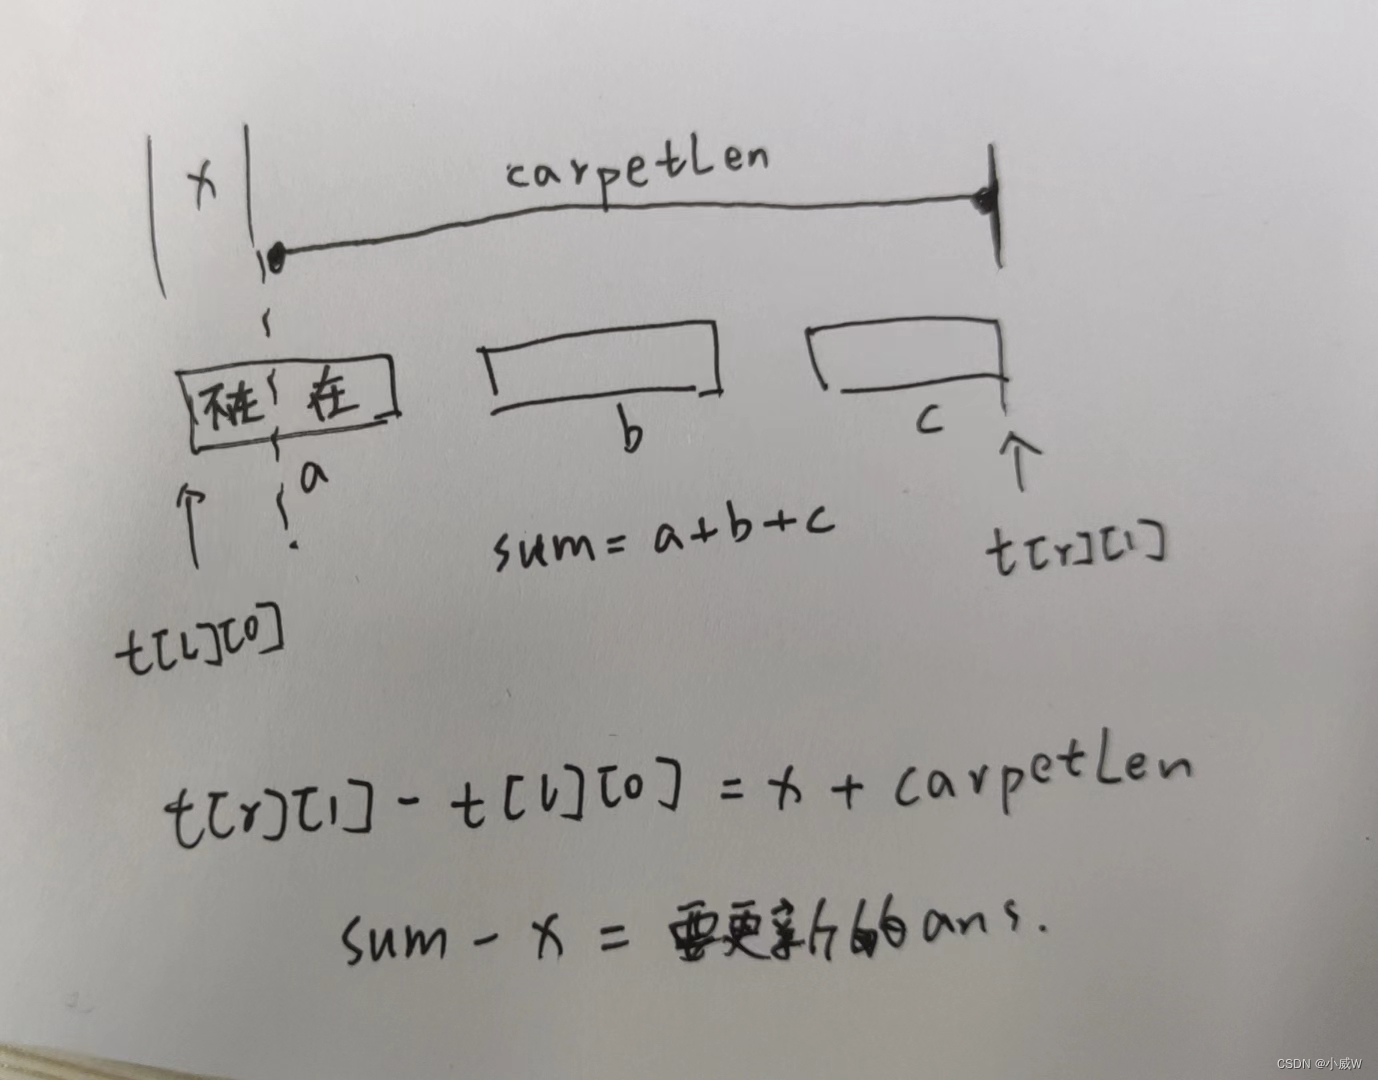 x
carpetLen
不在 在
a
b
c
sum = a+b+c
t[l][0]
t[r][1]
t[r][1] - t[l][0] = x + carpetLen
sum - x = 要更新的ans.
CSDN @小威W